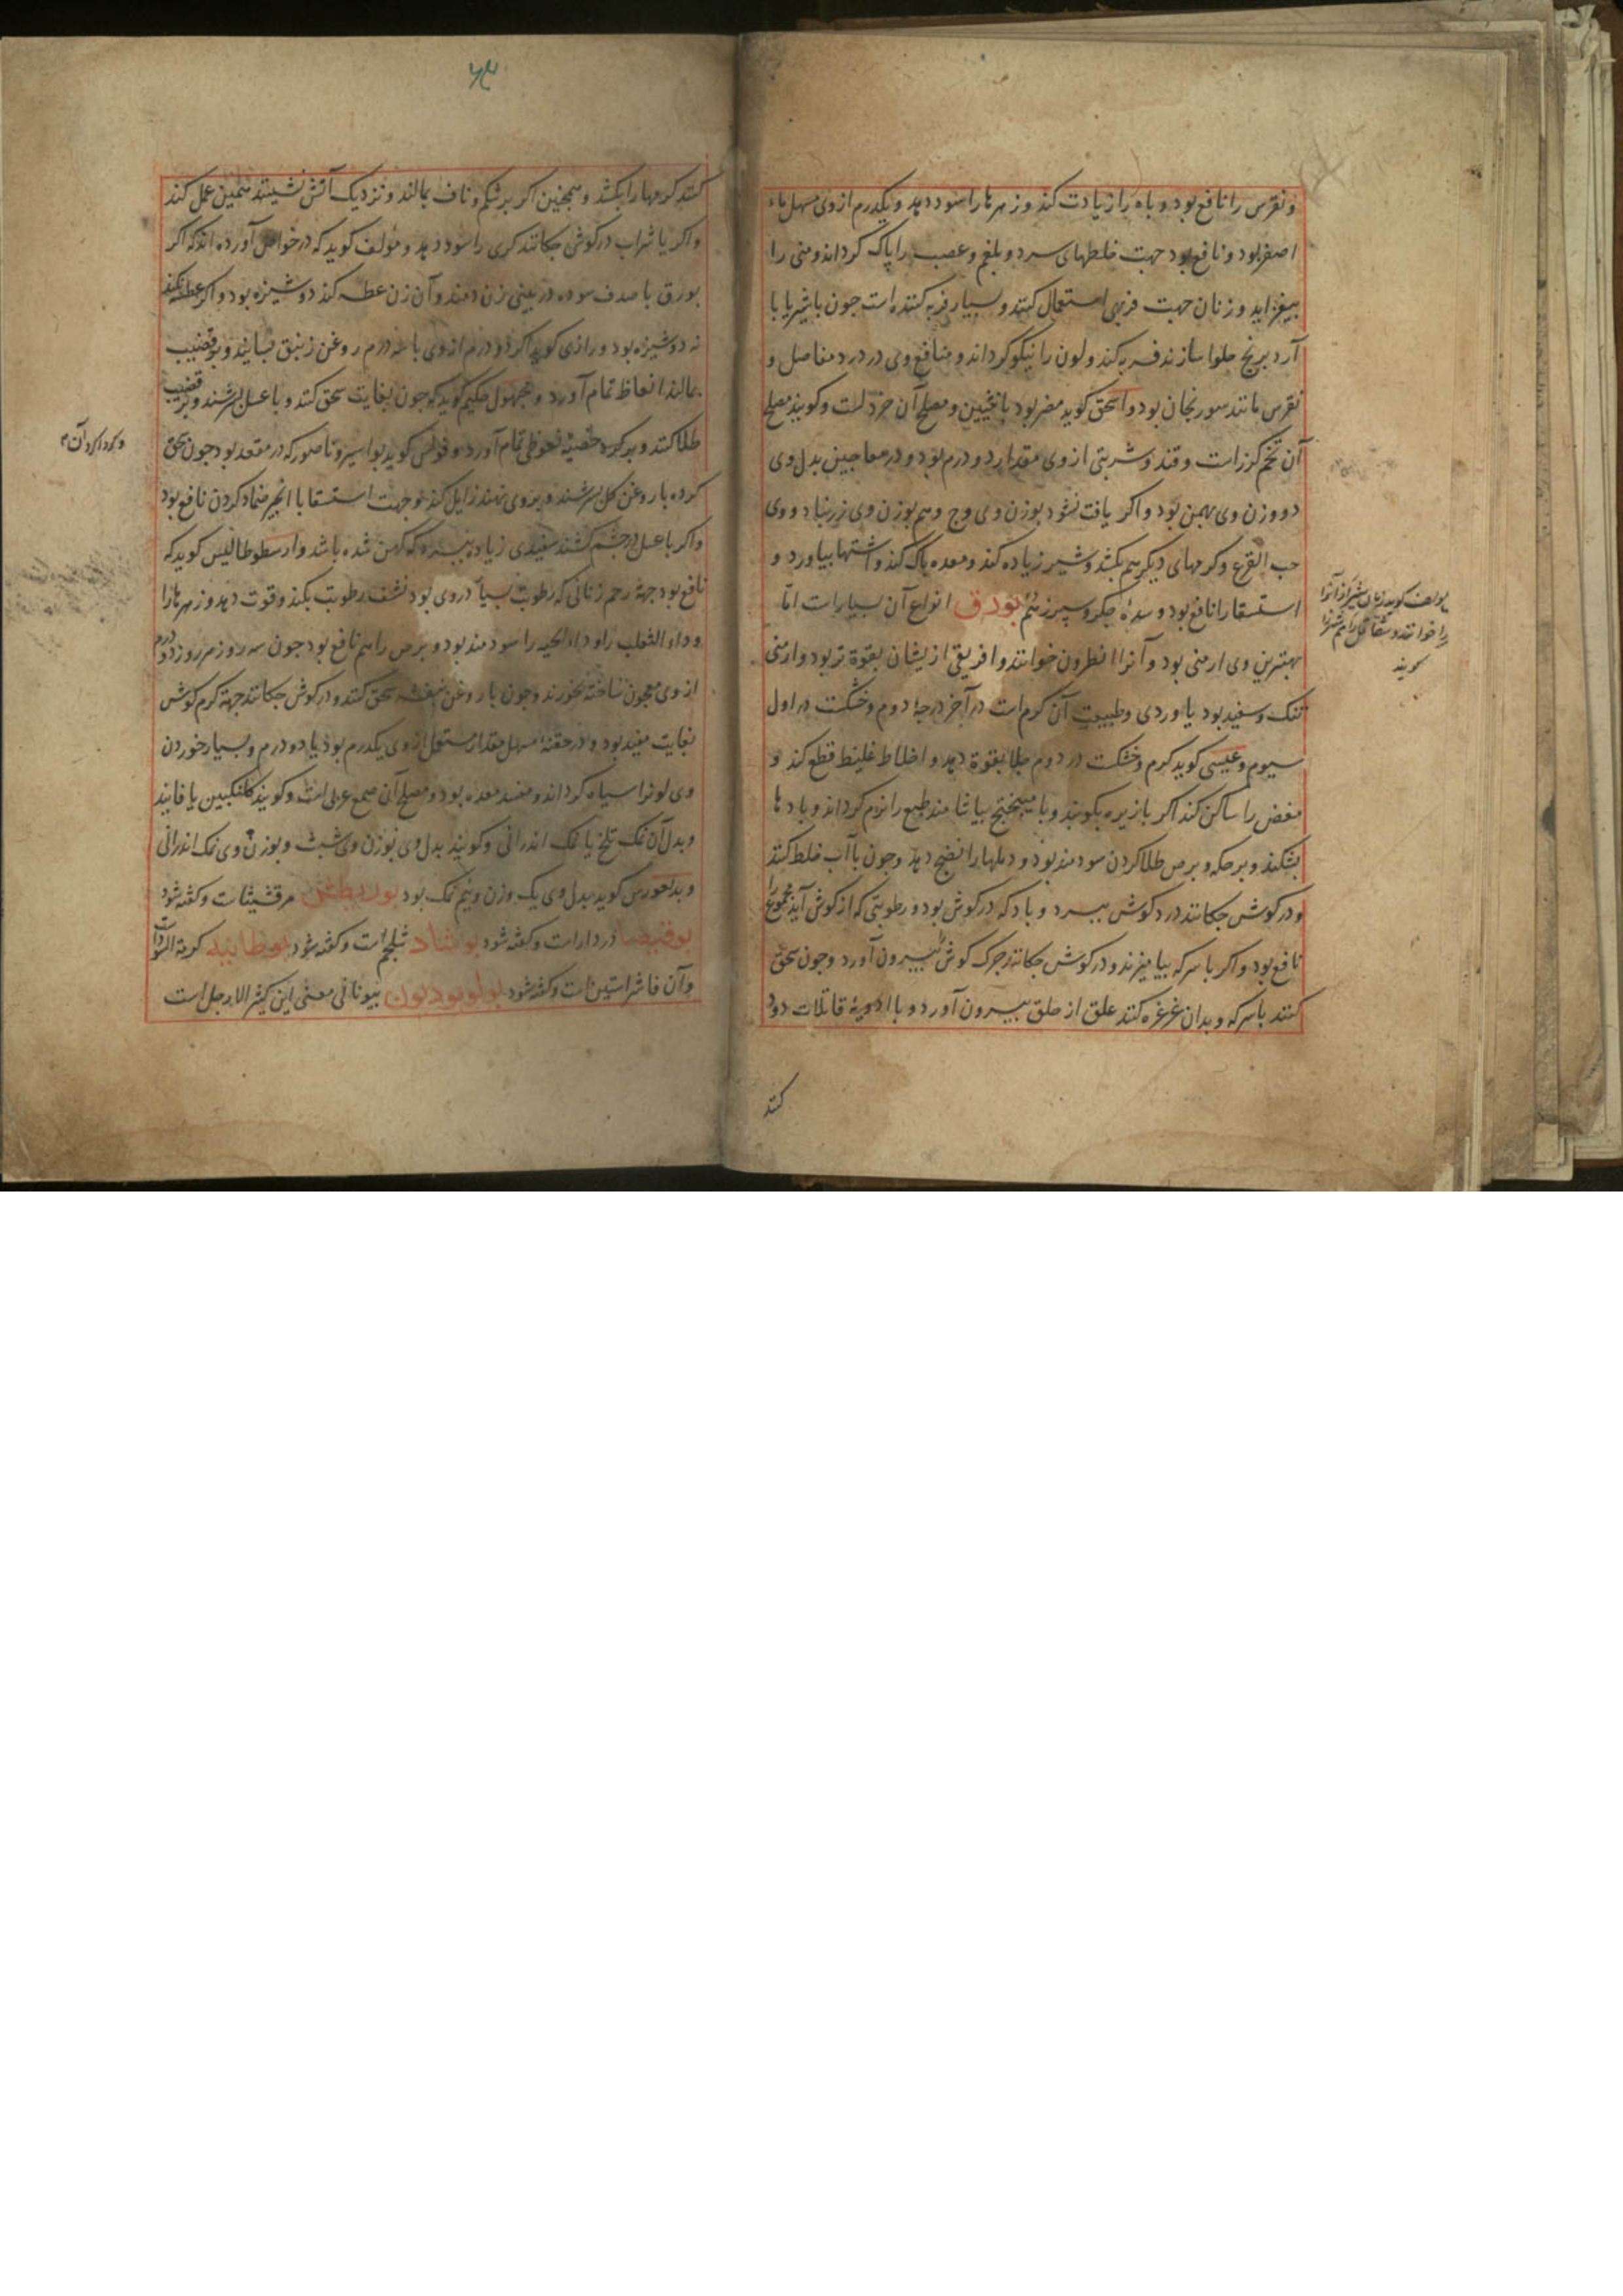 و نقرس را نافع بود و باه را زیادت کند و زهرها را سود دهد و یکدرم از وی مسهل ماء
اصفر بود و نافع بود جهت خلطهای سرد و بلغم و عصب را پاک گرداند و منی را
بیفزاید و زنان جهت فربهی استعمال کنند و بسیار فربه کننده است جون با شیر یا با
آرد برنج حلوا سازند فربه کند و لون را نیکو گرداند و منافع وی در درد مفاصل و
نقرس مانند سورنجان بود و اسحق کوید مضر بود با و مصلح آن خردلست و کویند مصلح
آن تخم کزرات و قند و شربتی از وی مقدار دو درم بود و در معاجین بدل وی
دو وزن وی بهمن بود و اکر یافت نشود بوزن وی وج و هم بوزن وی زرنباد و وی
حب القرع و کرمهای دیکر هم بکشد و شیر زیاده کند و معده پاک کند و اشتها بیاورد و
استسقا را نافع بود و سدهٔ جکر و سپرز هم بورق انواع آن بسیارات امّا
بهترین وی ارمنی بود و آنرا نطرون خوانند و افریقی ازیشان بقوة تر بود و ارمنی
تنک و سفید بود یا وردی و طبیعت آن کرم است در آخر درجهٔ دوم و خشکست در اول
سیوم و عیسی کوید کرم و خشکست در دوم جلا بقوة دهد و اخلاط غلیظ قطع کند و
مغض را ساکن کند اکر با زیره بکوبند و با میبختج بیاشامند طبع را نرم کرداند و بادها
بشکند و بر حکه و برص طلا کردن سودمند بود و دملها را نضج دهد وجون با آب خلط کنند
و در کوش جکانند درد کوش ببرد و باد که در کوش بود و رطوبتی که از کوش آید مجموع را
نافع بود و اکر با سرکه بیامیزند و در کوش جکانند جرک کوش بیرون آورد وجون سحق
کنند با سرکه و بدان غرغره کنند علق از حلق بیرون آورد و با ادویهٔ قاتلات دود
کنند
مولف کوید بزبان شیراز آنرا
را خوانند و شقاقل را هم
کویند
کنند کرمها را بکشد و همجنین اکر بر شکم و ناف بمالند و نزدیک آتش نشینند همین عمل کند
و اکر با شراب در کوش جکانند کری را سود دهد و مؤلف کوید که در خواص آورده اند که اکر
بورق با صدف سوده در بینی زن دمند و آن زن عطسه کند دوشیزه بود و اکر عطسه نکند
نه دوشیزه بود و رازی کوید اکر دو درم از وی با سه درم روغن زنبق بسایند و بر قضیب
بمالند انعاظ تمام آورد و مجهول حکیم کوید که جون بغایت سحق کنند و با عسل بسرشند و بر قضیب
طلا کنند و بر خصیه نعوظی تمام آورد و فولس کوید بواسیر و ناصور که در مقعد بود جون سحق
کرده با روغن کل بسرشند و بروی نهند زایل کند و جهت استسقا با انجیر ضماد کردن نافع بود
و اکر با عسل در چشم کشند سفیدی زیاده ببرد که کهن شده باشد و ارسطوطالیس کوید که
نافع بود جهة رحم زنانی که رطوبت بسیار در وی بود نشف رطوبت بکند و قوت دهد و زهرها را
و داء الثعلب را و داء الحیه را سودمند بود و برص را هم نافع بود جون سه روز هر روز دو درم
از وی معجون ساخته بخورند وجون با روغن بنفشه سحق کنند و در کوش جکانند جهة کرم کوش
بغایت مفید بود و در حقنه مسهل مقدار مستعمل از وی یکدرم بود یا دو درم و بسیار خوردن
وی لونرا سیاه کرداند و مفسد معده بود و مصلح آن صمغ عربی است و کویند کلنکبین یا فانید
و بدل آن نمک تلخ یا نمک اندرانی و کویند بدل وی بوزن وی شبث و بوزن وی نمک اندرانی
و کوید بدل وی یک وزن و نیم نمک بود بوریطش مرقشیثات و کفته شود
بوقیصا دردارات و کفته شود بوشاد شلجم است و کفته شود بوطانیه کرمة السودات
و آن فاشرستین ات و کفته شود بولوبودیون بیونانی معنی این کثیر الارجل است